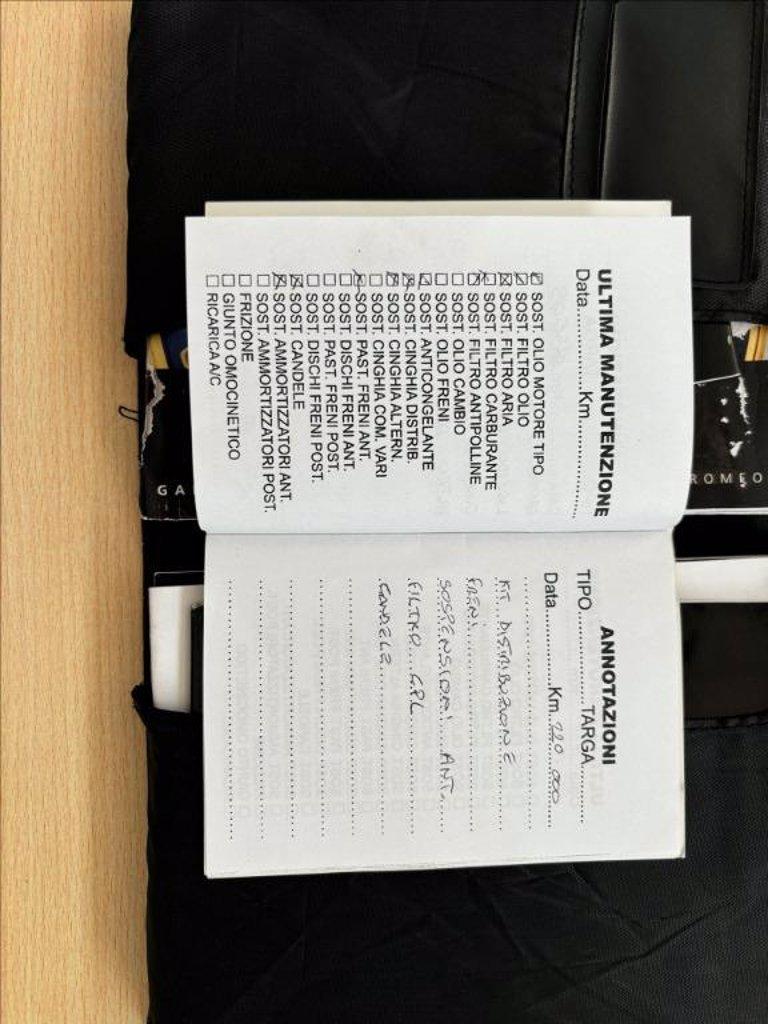 ULTIMA MANUTENZIONE
Data..................Km.....................
SOST. OLIO MOTORE TIPO
SOST. FILTRO OLIO
SOST. FILTRO ARIA
SOST. FILTRO CARBURANTE
SOST. FILTRO ANTIPOLLINE
SOST. OLIO CAMBIO
SOST. OLIO FRENI
SOST. ANTICONGELANTE
SOST. CINGHIA DISTRIB.
SOST. CINGHIA ALTERN.
SOST. CINGHIA COM. VARI
SOST. PAST. FRENI ANT.
SOST. DISCHI FRENI ANT.
SOST. PAST. FRENI POST.
SOST. DISCHI FRENI POST.
SOST. CANDELE
SOST. AMMORTIZZATORI ANT.
SOST. AMMORTIZZATORI POST.
FRIZIONE
GIUNTO OMOCINETICO
RICARICA A/C
ANNOTAZIONI
TIPO.................... TARGA.............
Data..................Km. 220.000
KIT DISTRIBUZIONE
FRENI
SOSPENSIONI ANT.
FILTRO GPL
CANDELE
GA
ROMEO